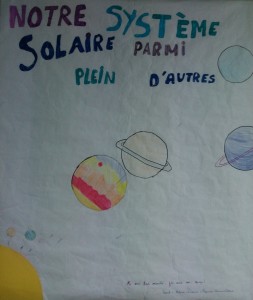 NOTRE SYSTÈME
SOLAIRE PARMI
PLEIN D'AUTRES